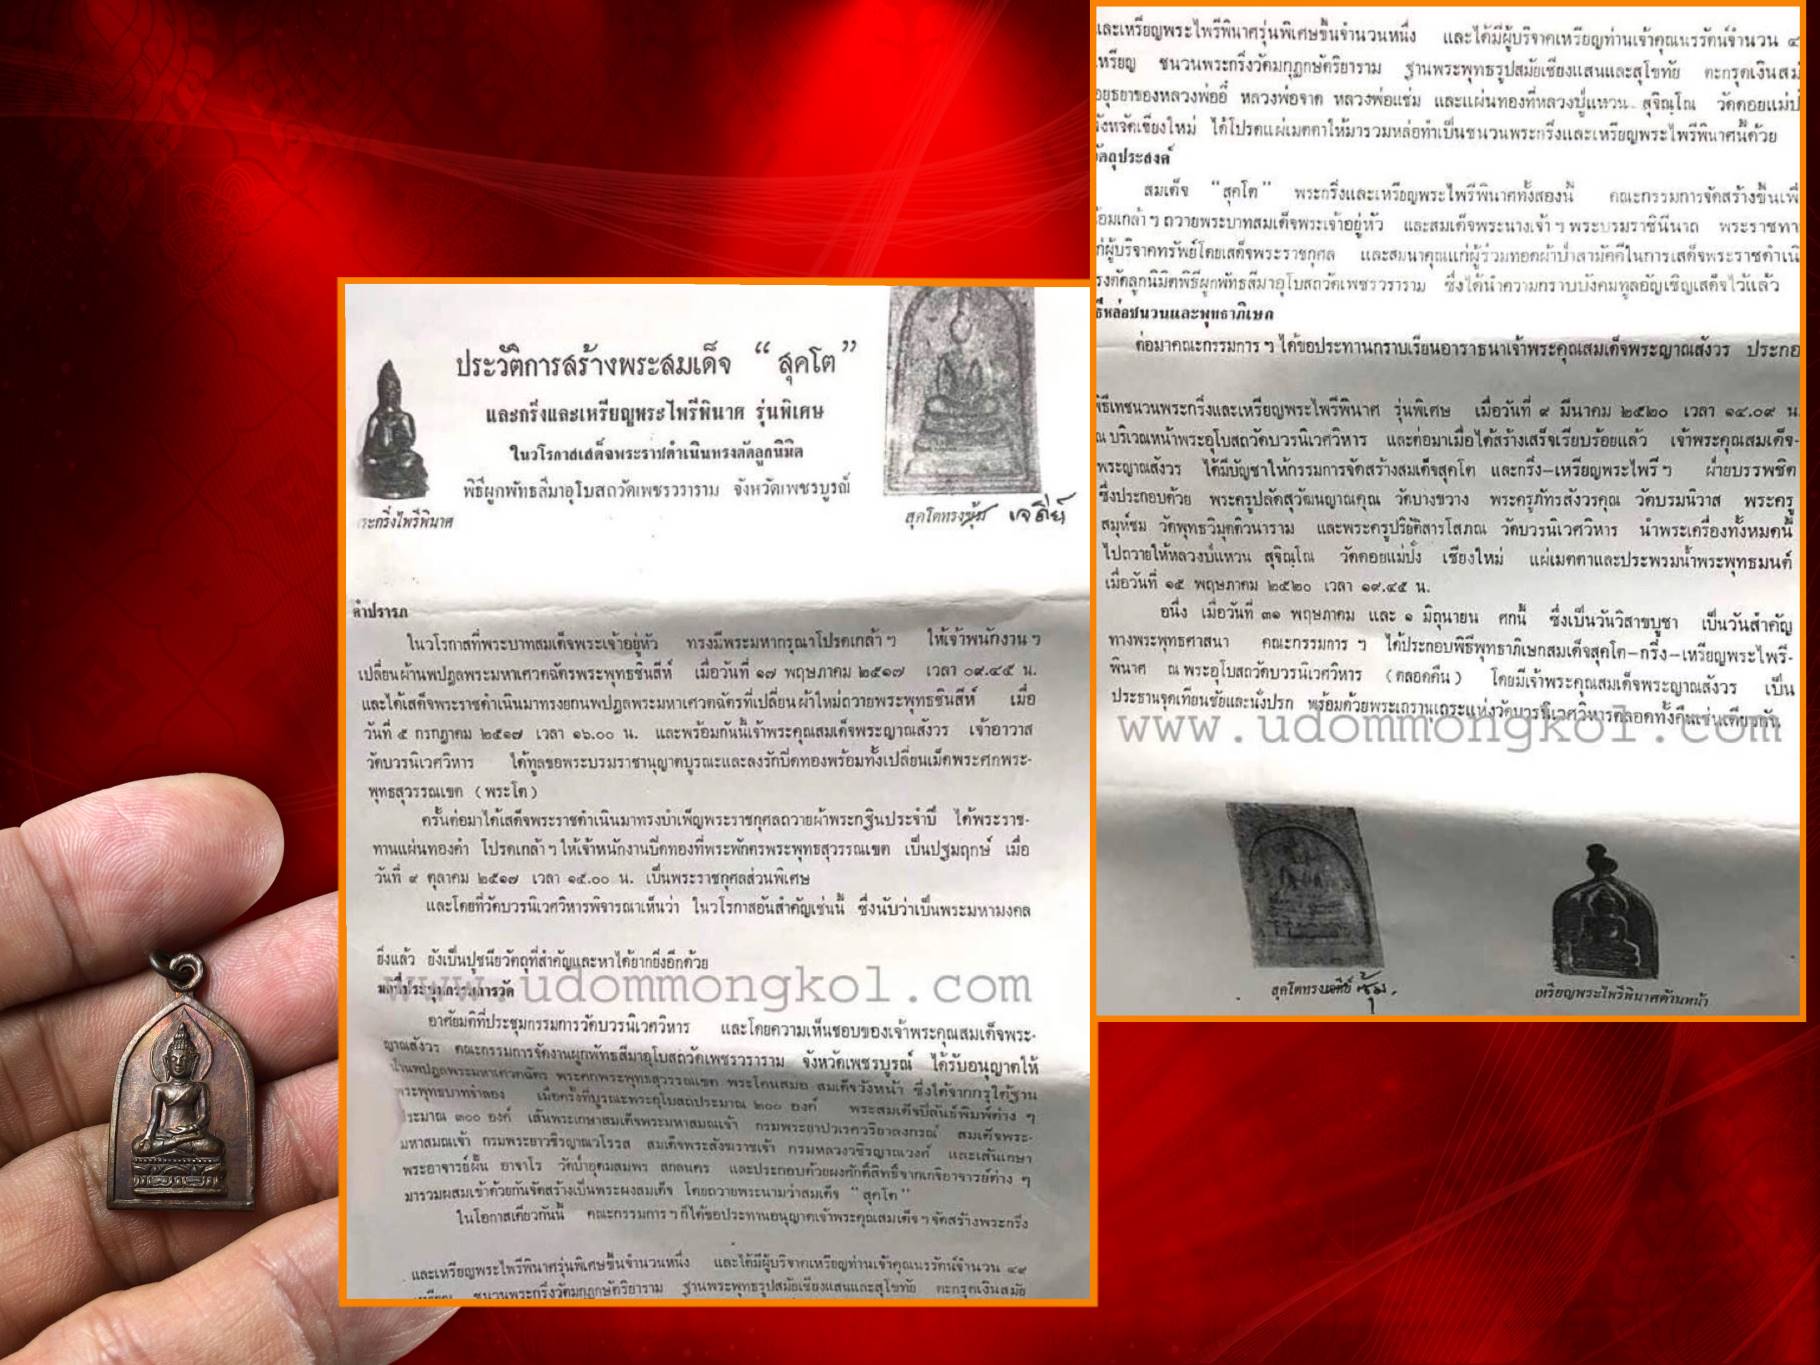 ประวัติการสร้างพระสมเด็จ “สุคโต”
และกริ่งและเหรียญพระไพรีพินาศ รุ่นพิเศษ
ในวโรกาสเสด็จพระราชดำเนินทรงตัดลูกนิมิต
พิธีผูกพัทธสีมาอุโบสถวัดเพชรวราราม จังหวัดเพชรบูรณ์
พระกริ่งไพรีพินาศ
สุคโตทรงซุ้ม เจดีย์
คำปรารภ
ในวโรกาสที่พระบาทสมเด็จพระเจ้าอยู่หัว ทรงมีพระมหากรุณาโปรดเกล้าฯ ให้เจ้าพนักงานฯ
เปลี่ยนผ้านพปฎลพระมหาเศวตฉัตรพระพุทธชินสีห์ เมื่อวันที่ ๑๗ พฤษภาคม ๒๕๑๗ เวลา ๐๙.๔๕ น.
และได้เสด็จพระราชดำเนินมาทรงยกนพปฎลพระมหาเศวตฉัตรที่เปลี่ยนผ้าใหม่ถวายพระพุทธชินสีห์ เมื่อ
วันที่ ๕ กรกฎาคม ๒๕๑๗ เวลา ๑๖.๐๐ น. และพร้อมกันนี้เจ้าพระคุณสมเด็จพระญาณสังวร เจ้าอาวาส
วัดบวรนิเวศวิหาร ได้ทูลขอพระบรมราชานุญาตบูรณะและลงรักปิดทองพร้อมทั้งเปลี่ยนเม็ดพระศกพระ-
พุทธสุวรรณเขต (พระโต)
ครั้นต่อมาได้เสด็จพระราชดำเนินมาทรงบำเพ็ญพระราชกุศลถวายผ้าพระกฐินประจำปี ได้พระราช-
ทานแผ่นทองคำ โปรดเกล้าฯ ให้เจ้าหนักงานปิดทองที่พระพักตรพระพุทธสุวรรณเขต เป็นปฐมฤกษ์ เมื่อ
วันที่ ๙ ตุลาคม ๒๕๑๗ เวลา ๑๕.๐๐ น. เป็นพระราชกุศลส่วนพิเศษ
และโดยที่วัดบวรนิเวศวิหารพิจารณาเห็นว่า ในวโรกาสอันสำคัญเช่นนี้ ซึ่งนับว่าเป็นพระมหามงคล
ยิ่งแล้ว ยังเป็นปูชนียวัตถุที่สำคัญและหาได้ยากยิ่งอีกด้วย
มติที่ประชุมกรรมการวัด
www.udommongkol.com
อาศัยมติที่ประชุมกรรมการวัดบวรนิเวศวิหาร และโดยความเห็นชอบของเจ้าพระคุณสมเด็จพระ-
ญาณสังวร คณะกรรมการจัดงานผูกพัทธสีมาอุโบสถวัดเพชรวราราม จังหวัดเพชรบูรณ์ ได้รับอนุญาตให้
ผ้านพปฎลพระมหาเศวตฉัตร พระศกพระพุทธสุวรรณเขต พระโคนสมอ สมเด็จวังหน้า ซึ่งได้จากกรุใต้ฐาน
พระพุทธบาทจำลอง เมื่อครั้งที่บูรณะพระอุโบสถประมาณ ๒๐๐ องค์ พระสมเด็จปิลันธ์พิมพ์ต่าง ๆ
ประมาณ ๓๐๐ องค์ เส้นพระเกษาสมเด็จพระมหาสมณเจ้า กรมพระยาปวเรศวริยาลงกรณ์ สมเด็จพระ-
มหาสมณเจ้า กรมพระยาวชิรญาณวโรรส สมเด็จพระสังฆราชเจ้า กรมหลวงวชิรญาณวงศ์ และเส้นเกษา
พระอาจารย์ฝั้น อาจาโร วัดป่าอุดมสมพร สกลนคร และประกอบด้วยผงศักดิ์สิทธิ์จากเกจิอาจารย์ต่าง ๆ
มารวมผสมเข้าด้วยกันจัดสร้างเป็นพระผงสมเด็จ โดยถวายพระนามว่าสมเด็จ “สุคโต”
ในโอกาสเดียวกันนี้ คณะกรรมการฯ ก็ได้ขอประทานอนุญาตเจ้าพระคุณสมเด็จฯ จัดสร้างพระกริ่ง
และเหรียญพระไพรีพินาศรุ่นพิเศษขึ้นจำนวนหนึ่ง และได้มีผู้บริจาคเหรียญท่านเจ้าคุณนรรัตน์จำนวน ๔๙
เหรียญ ชนวนพระกริ่งวัดมกุฏกษัตริยาราม ฐานพระพุทธรูปสมัยเชียงแสนและสุโขทัย ตะกรุดเงินสมัย
และเหรียญพระไพรีพินาศรุ่นพิเศษขึ้นจำนวนหนึ่ง และได้มีผู้บริจาคเหรียญท่านเจ้าคุณนรรัตน์จำนวน ๔
เหรียญ ชนวนพระกริ่งวัดมกุฏกษัตริยาราม ฐานพระพุทธรูปสมัยเชียงแสนและสุโขทัย ตะกรุดเงินสมั
อยุธยาของหลวงพ่ออี๋ หลวงพ่อจาด หลวงพ่อแช่ม และแผ่นทองที่หลวงปู่แหวน สุจิณฺโณ วัดดอยแม่ป
จังหวัดเชียงใหม่ ได้โปรดแผ่เมตตาให้มารวมหล่อทำเป็นชนวนพระกริ่งและเหรียญพระไพรีพินาศนี้ด้วย
วัตถุประสงค์
สมเด็จ “สุคโต” พระกริ่งและเหรียญพระไพรีพินาศทั้งสองนี้ คณะกรรมการจัดสร้างขึ้นเพื่
น้อมเกล้าฯ ถวายพระบาทสมเด็จพระเจ้าอยู่หัว และสมเด็จพระนางเจ้าฯ พระบรมราชินีนาถ พระราชทา
แก่ผู้บริจาคทรัพย์โดยเสด็จพระราชกุศล และสมนาคุณแก่ผู้ร่วมทอดผ้าป่าสามัคคีในการเสด็จพระราชดำเนิ
ทรงตัดลูกนิมิตพิธีผูกพัทธสีมาอุโบสถวัดเพชรวราราม ซึ่งได้นำความกราบบังคมทูลอัญเชิญเสด็จไว้แล้ว
ธีหล่อชนวนและพุทธาภิเษก
ต่อมาคณะกรรมการฯ ได้ขอประทานกราบเรียนอาราธนาเจ้าพระคุณสมเด็จพระญาณสังวร ประกอ
พิธีเทชนวนพระกริ่งและเหรียญพระไพรีพินาศ รุ่นพิเศษ เมื่อวันที่ ๙ มีนาคม ๒๕๒๐ เวลา ๑๔.๐๙ น.
ณ บริเวณหน้าพระอุโบสถวัดบวรนิเวศวิหาร และต่อมาเมื่อได้สร้างเสร็จเรียบร้อยแล้ว เจ้าพระคุณสมเด็จ-
พระญาณสังวร ได้มีบัญชาให้กรรมการจัดสร้างสมเด็จสุคโต และกริ่ง–เหรียญพระไพรีฯ ฝ่ายบรรพชิต
ซึ่งประกอบด้วย พระครูปลัดสุวัฒนญาณคุณ วัดบางขวาง พระครูภัทรสังวรคุณ วัดบรมนิวาส พระครู
สมุห์ชม วัดพุทธวิมุตติวนาราม และพระครูปริยัติสารโสภณ วัดบวรนิเวศวิหาร นำพระเครื่องทั้งหมดนี้
ไปถวายให้หลวงปู่แหวน สุจิณฺโณ วัดดอยแม่ปั๋ง เชียงใหม่ แผ่เมตตาและประพรมน้ำพระพุทธมนต์
เมื่อวันที่ ๑๕ พฤษภาคม ๒๕๒๐ เวลา ๑๙.๔๕ น.
อนึ่ง เมื่อวันที่ ๓๑ พฤษภาคม และ ๑ มิถุนายน ศกนี้ ซึ่งเป็นวันวิสาขบูชา เป็นวันสำคัญ
ทางพระพุทธศาสนา คณะกรรมการฯ ได้ประกอบพิธีพุทธาภิเษกสมเด็จสุคโต–กริ่ง–เหรียญพระไพรี-
พินาศ ณ พระอุโบสถวัดบวรนิเวศวิหาร (ตลอดคืน) โดยมีเจ้าพระคุณสมเด็จพระญาณสังวร เป็น
ประธานจุดเทียนชัยและนั่งปรก พร้อมด้วยพระเถรานุเถระแห่งวัดบวรนิเวศวิหารตลอดทั้งคืนเช่นเดียวกัน
www.udommongkol.com
สุคโตทรงเจดีย์ ซุ้ม.
เหรียญพระไพรีพินาศด้านหน้า